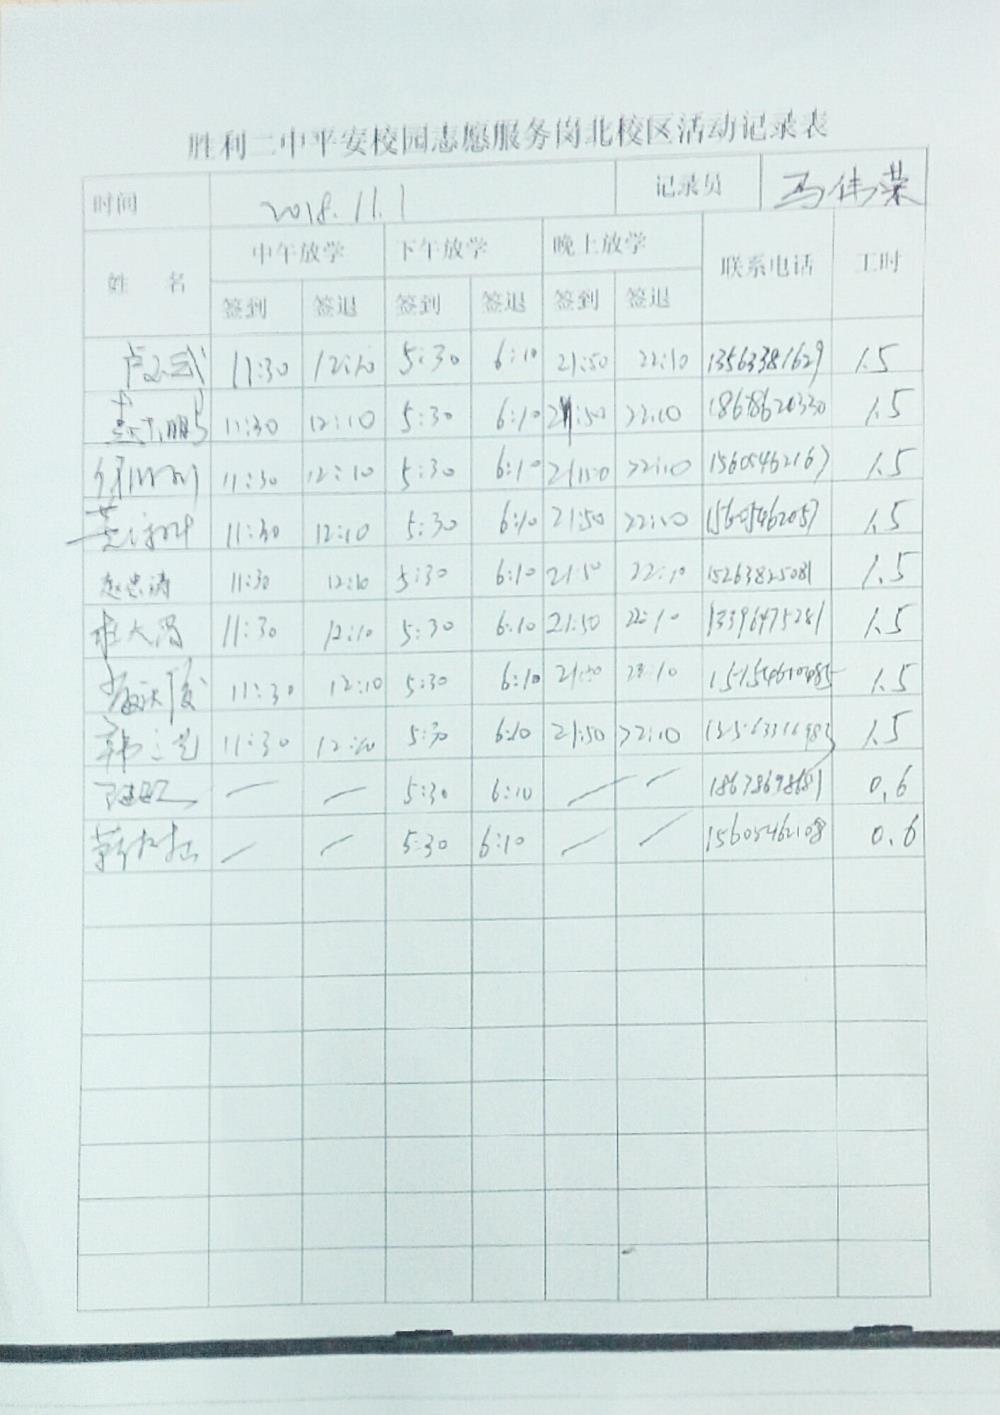 胜利二中平安校园志愿服务岗北校区活动记录表
时间 2018.11.1 记录员 马伟荣
姓 名 中午放学 下午放学 晚上放学 联系电话 工时
签到 签退 签到 签退 签到 签退
11:30 12:10 5:30 6:10 21:50 22:10 13563381629 1.5
11:30 12:10 5:30 6:10 21:50 22:10 18678620330 1.5
11:30 12:10 5:30 6:10 21:50 22:10 15605462167 1.5
11:30 12:10 5:30 6:10 21:50 22:10 15605462057 1.5
赵忠涛 11:30 12:10 5:30 6:10 21:50 22:10 15263825081 1.5
11:30 12:10 5:30 6:10 21:50 22:10 13396475281 1.5
11:30 12:10 5:30 6:10 21:50 22:10 1.5
11:30 12:10 5:30 6:10 21:50 22:10 1.5
— — 5:30 6:10 — — 18678698681 0.6
— — 5:30 6:10 — — 15605462108 0.6